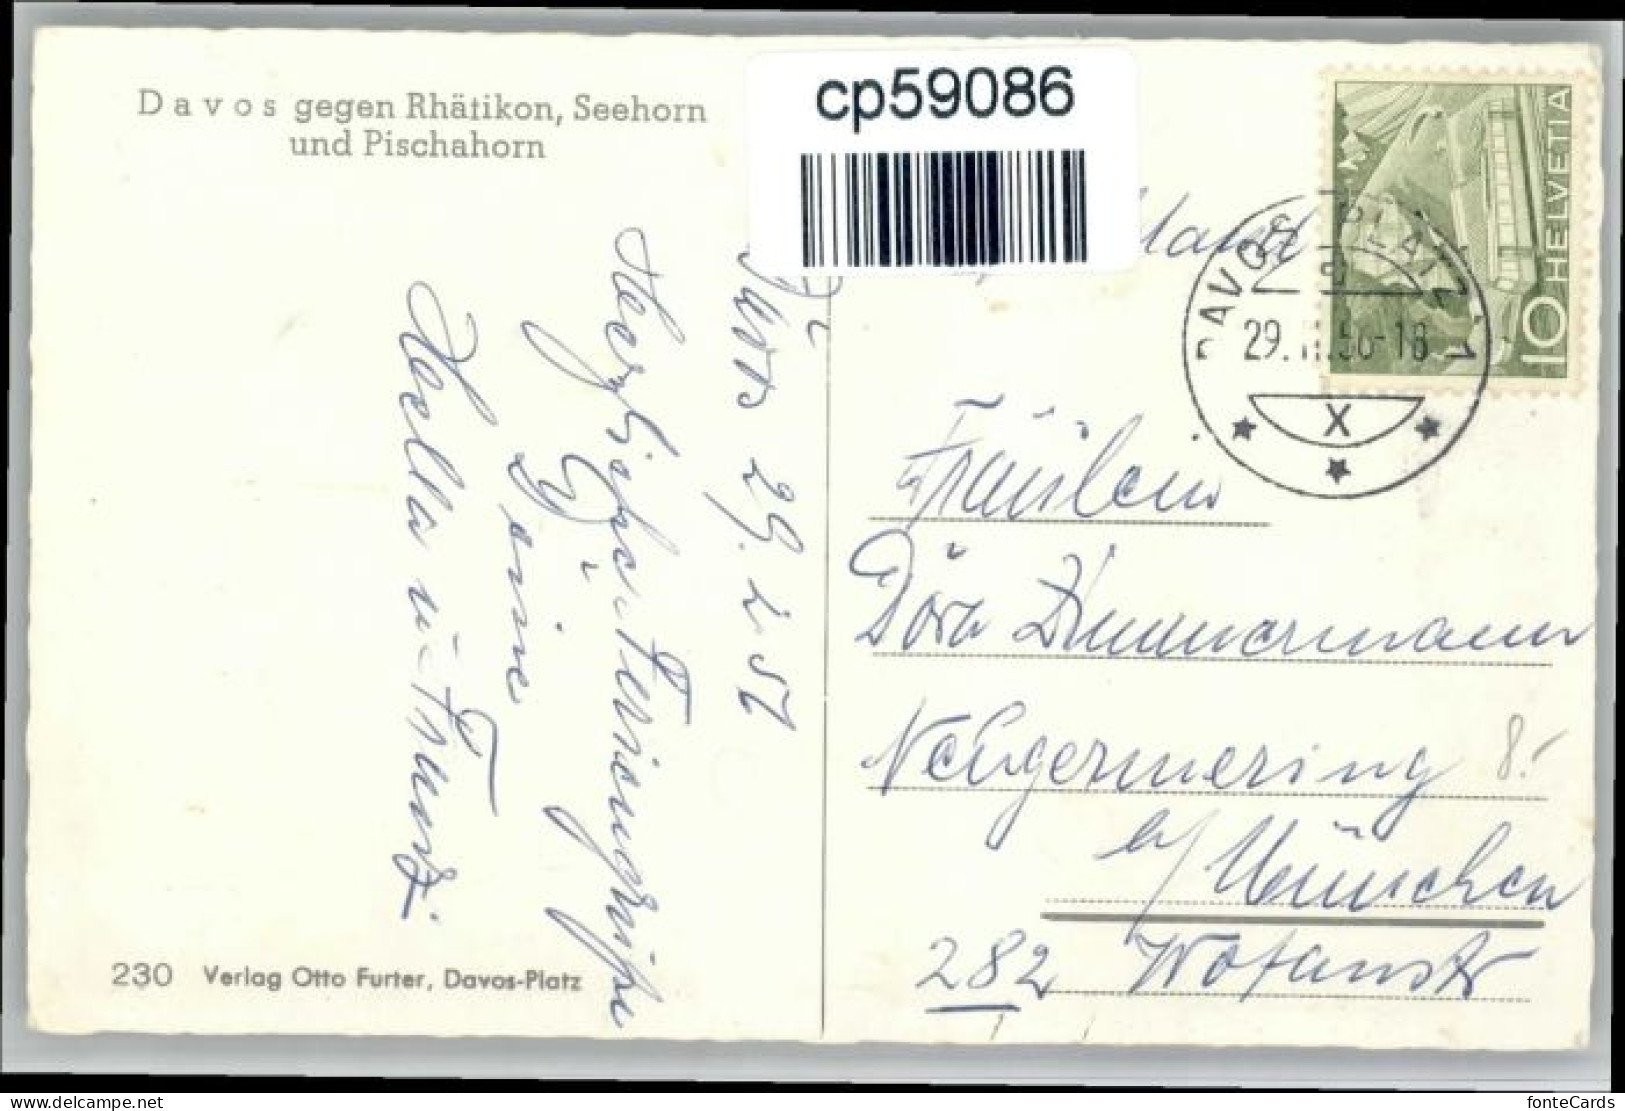 Davos gegen Rhätikon, Seehorn
und Pischahorn
cp59086
HELVETIA
10
DAVOS PLATZ 1
29. II. 56-18
X
Davos 29. 2. 56
Herzliche Feriengrüsse
Hella u. Franz
Fräulein
Dora Zimmermann
Neugermering 8.
b/ München
282 Wotanstr
230 Verlag Otto Furter, Davos-Platz
fonteCards